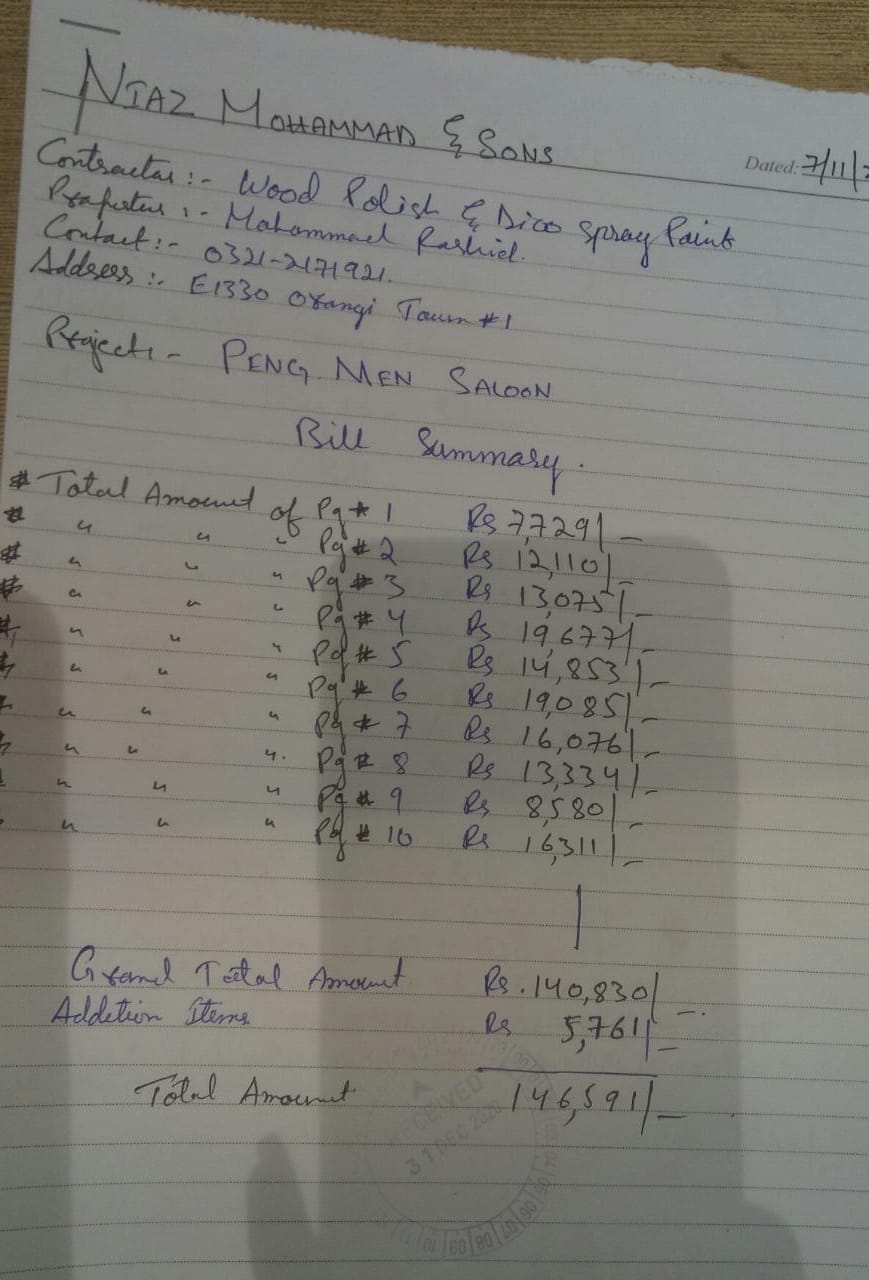 NIAZ MOHAMMAD & SONS
Dated: 7/11/
Contractor :- Wood Polish & Dico Spray Paint
Properter :- Mohammad Rashid.
Contact :- 0321-2171921.
Address :- E1330 Orangi Town #1
Project :- PENG MEN SALOON
Bill Summary.
# Total Amount of Pg # 1 Rs 7,729/-
# " " " Pg # 2 Rs 12,110/-
# " " " Pg # 3 Rs 13,075/-
# " " " Pg # 4 Rs 19,677/-
# " " " Pg # 5 Rs 14,853/-
# " " " Pg # 6 Rs 19,085/-
# " " " Pg # 7 Rs 16,076/-
# " " " Pg # 8 Rs 13,334/-
" " " Pg # 9 Rs 8,580/-
" " " Pg # 10 Rs 16,311/-
Grand Total Amount Rs. 140,830/-.
Addetion Items Rs 5,761/-
Total Amount 146,591/-
RECEIVED
31 DEC 2020